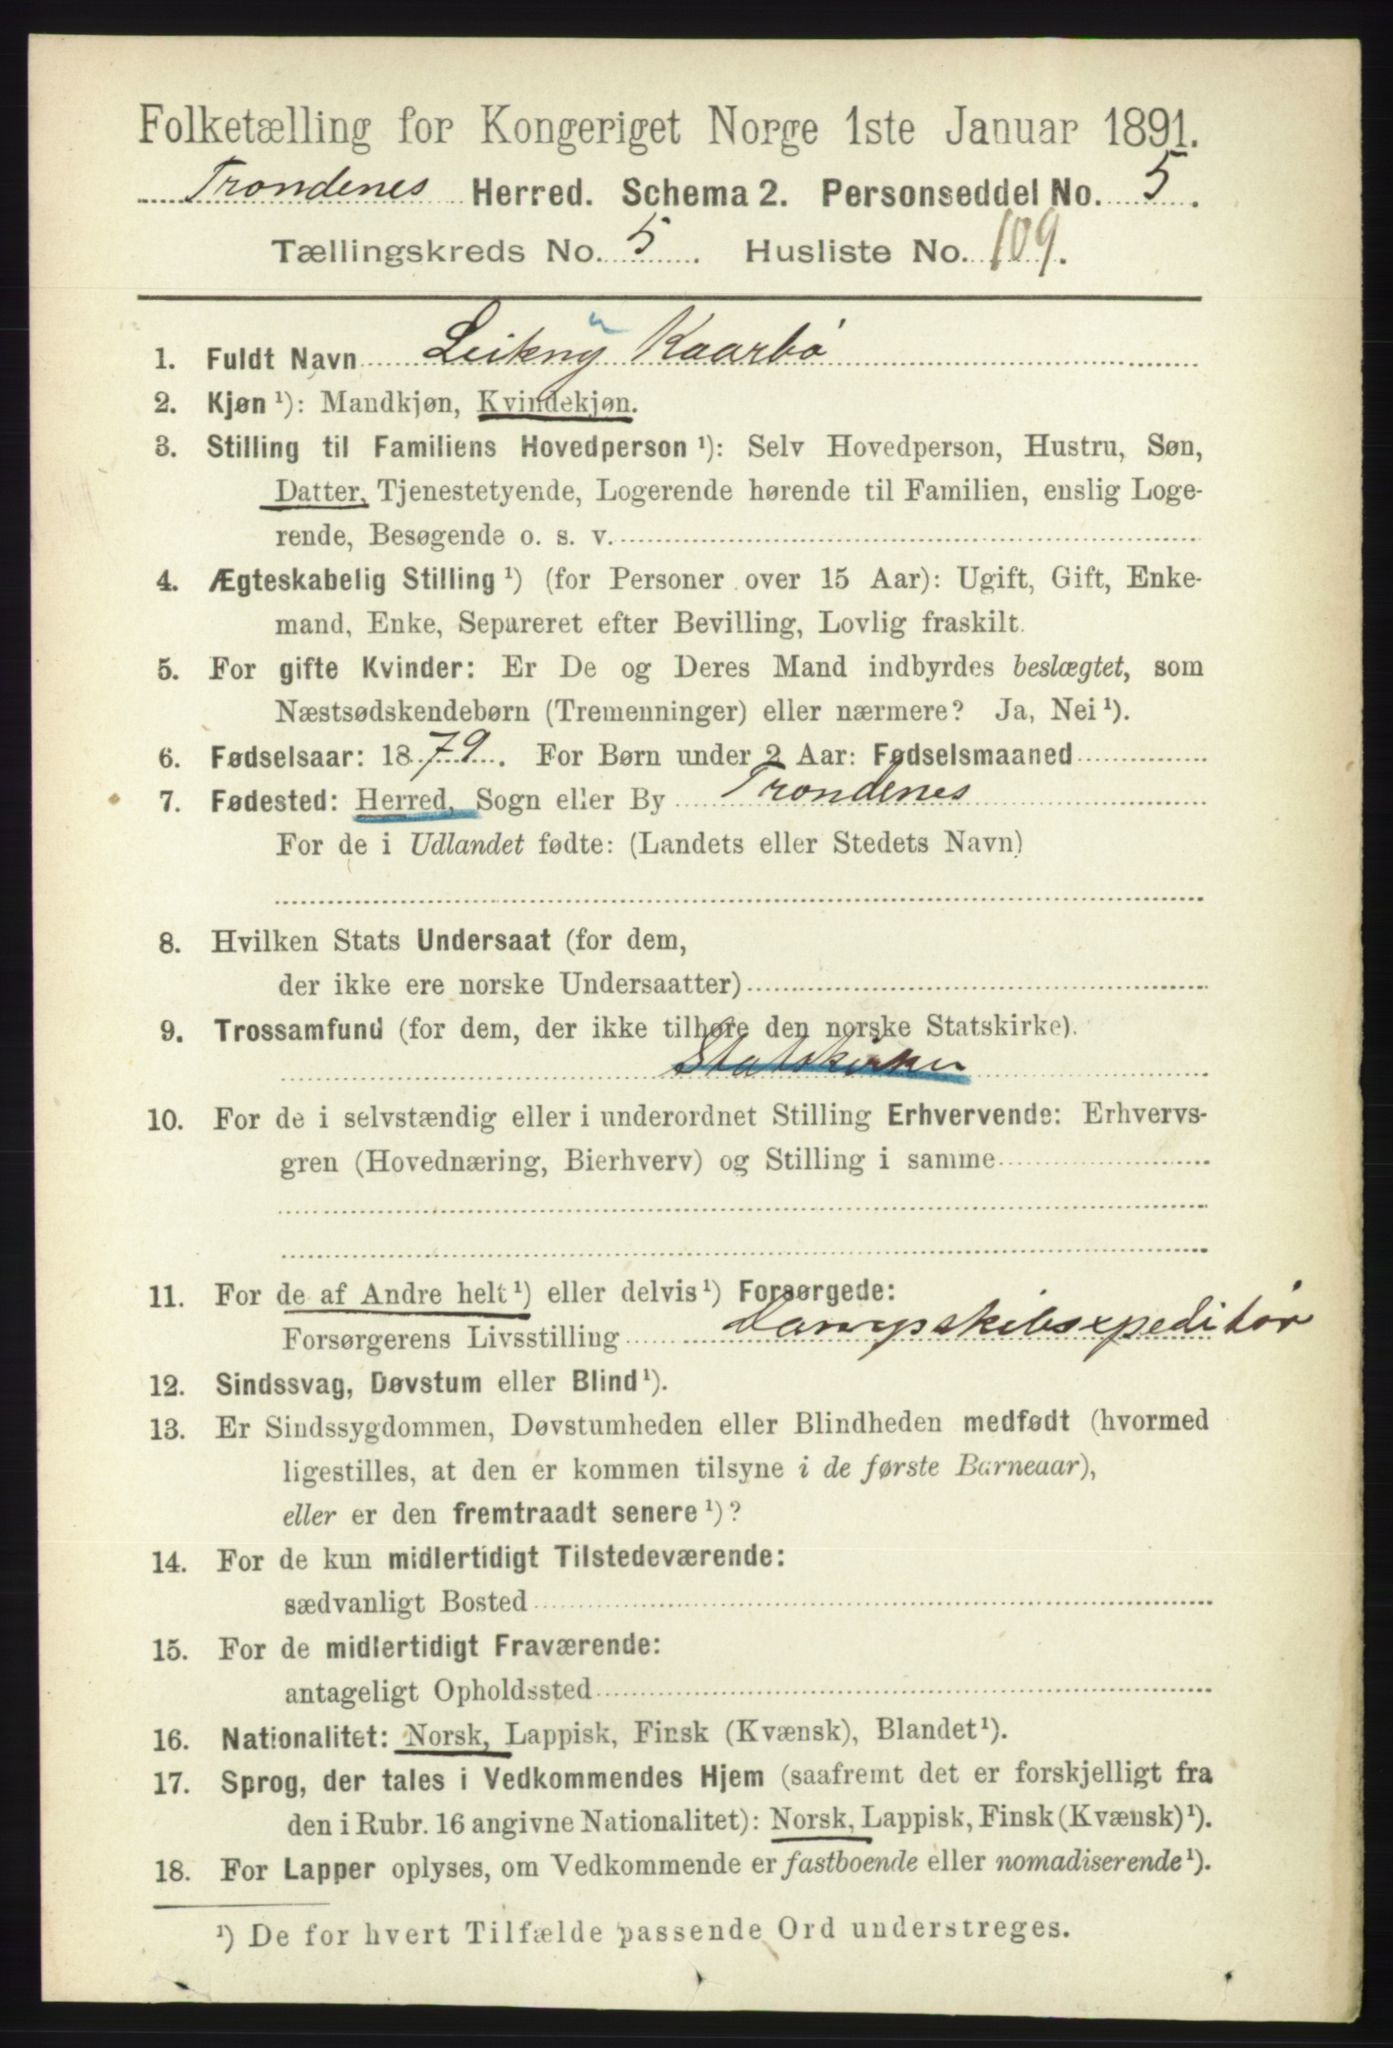 Folketælling for Kongeriget Norge 1ste Januar 1891.
Trondenes Herred. Schema 2. Personseddel No. 5.
Tællingskreds No. 5. Husliste No. 109.
1. Fuldt Navn Leikny Kaarbø
2. Kjøn ¹): Mandkjøn, Kvindekjøn.
3. Stilling til Familiens Hovedperson ¹): Selv Hovedperson, Hustru, Søn,
Datter, Tjenestetyende, Logerende hørende til Familien, enslig Loge-
rende, Besøgende o. s. v.
4. Ægteskabelig Stilling ¹) (for Personer over 15 Aar): Ugift, Gift, Enke-
mand, Enke, Separeret efter Bevilling, Lovlig fraskilt.
5. For gifte Kvinder: Er De og Deres Mand indbyrdes beslægtet, som
Næstsødskendebørn (Tremenninger) eller nærmere? Ja, Nei ¹).
6. Fødselsaar: 1879. For Børn under 2 Aar: Fødselsmaaned
7. Fødested: Herred, Sogn eller By Trondenes
For de i Udlandet fødte: (Landets eller Stedets Navn)
8. Hvilken Stats Undersaat (for dem,
der ikke ere norske Undersaatter)
9. Trossamfund (for dem, der ikke tilhøre den norske Statskirke).
Statskirken
10. For de i selvstændig eller i underordnet Stilling Erhvervende: Erhvervs-
gren (Hovednæring, Bierhverv) og Stilling i samme
11. For de af Andre helt ¹) eller delvis ¹) Forsørgede:
Forsørgerens Livsstilling Dampskibsexpeditør
12. Sindssvag, Døvstum eller Blind ¹).
13. Er Sindssygdommen, Døvstumheden eller Blindheden medfødt (hvormed
ligestilles, at den er kommen tilsyne i de første Barneaar),
eller er den fremtraadt senere ¹)?
14. For de kun midlertidigt Tilstedeværende:
sædvanligt Bosted
15. For de midlertidigt Fraværende:
antageligt Opholdssted
16. Nationalitet: Norsk, Lappisk, Finsk (Kvænsk), Blandet ¹).
17. Sprog, der tales i Vedkommendes Hjem (saafremt det er forskjelligt fra
den i Rubr. 16 angivne Nationalitet): Norsk, Lappisk, Finsk (Kvænsk) ¹).
18. For Lapper oplyses, om Vedkommende er fastboende eller nomadiserende ¹).
¹) De for hvert Tilfælde passende Ord understreges.